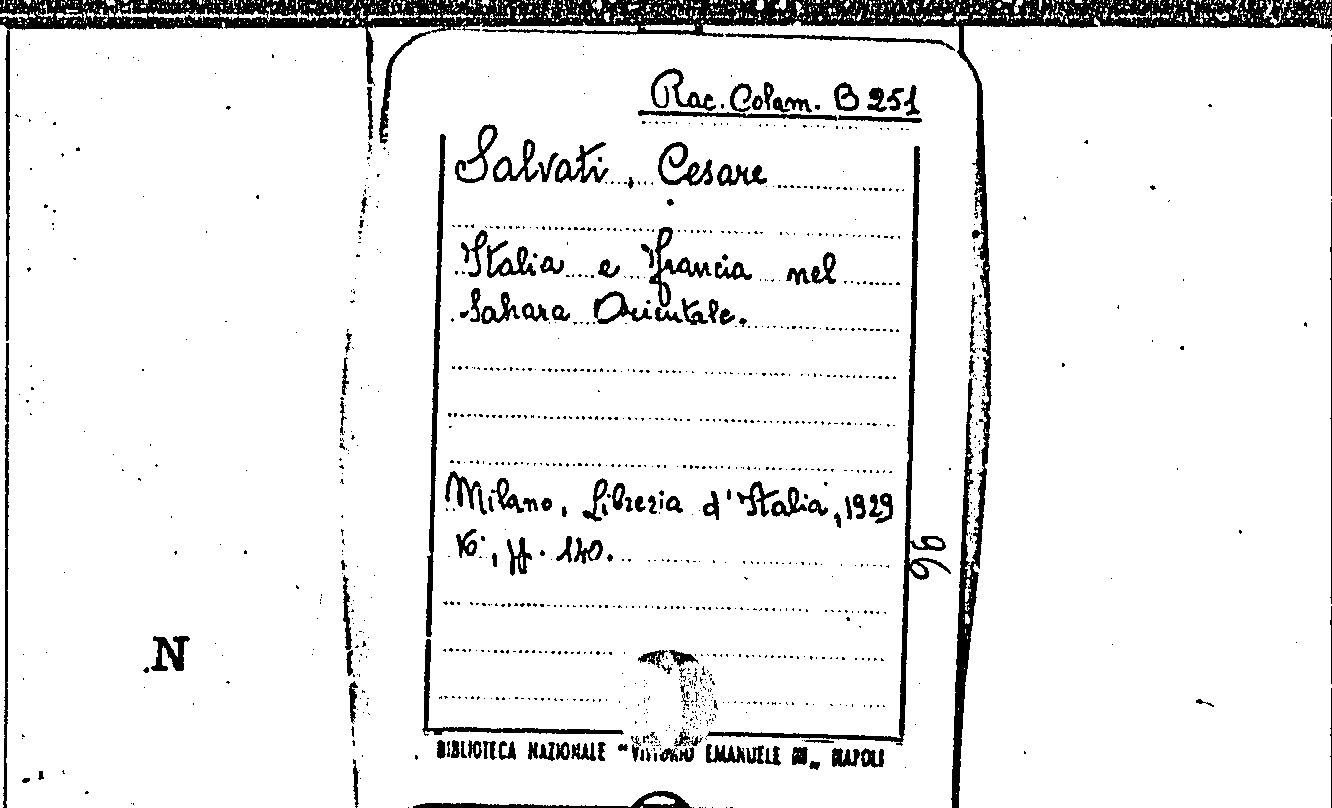 Rac. Colam. B 251
Salvati, Cesare
Italia e Francia nel
Sahara Orientale.
Milano, Libreria d'Italia, 1929
16°, pp. 140.
96
N
BIBLIOTECA NAZIONALE "VITTORIO EMANUELE III„ NAPOLI